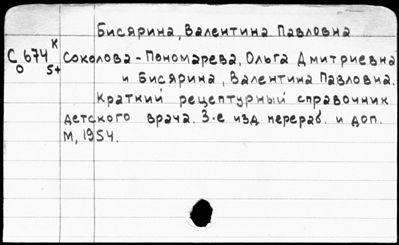 Бисярина, Валентина Павловна
С 674 к Соколова-Пономарева, Ольга Дмитриевна
О 5+ и Бисярина, Валентина Павловна.
Краткий рецептурный справочник
детского врача. 3-е изд перераб. и доп.
М, 1954.